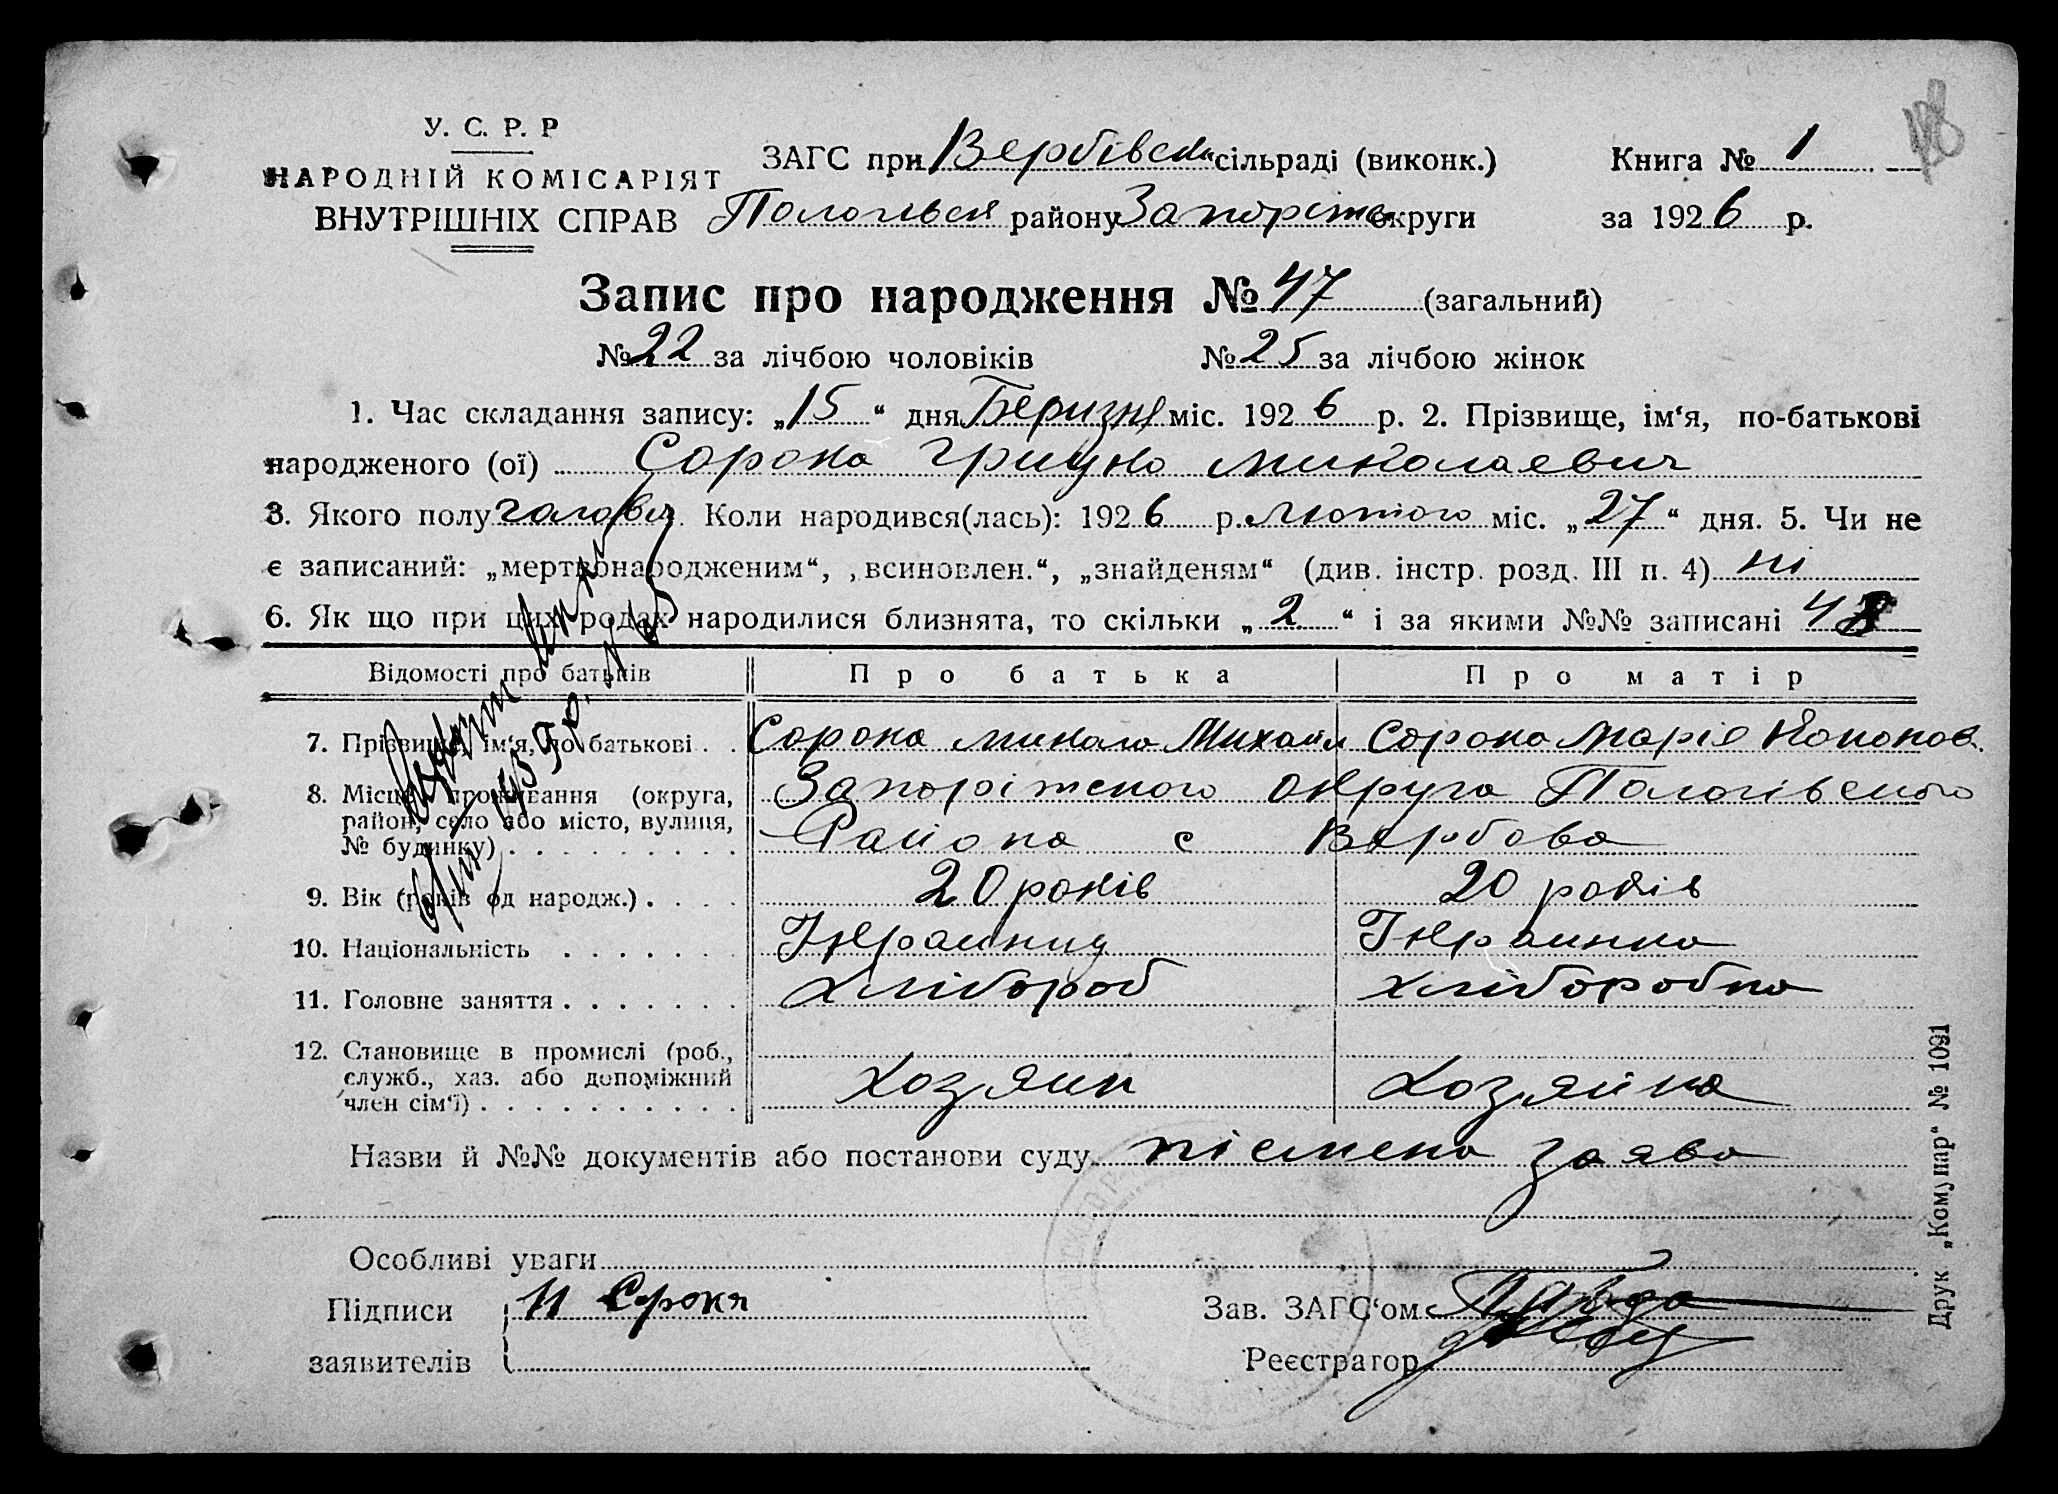 У. С. Р. Р
НАРОДНІЙ КОМІСАРІЯТ
ВНУТРІШНІХ СПРАВ
ЗАГС при Вербівск сільраді (виконк.)
Книга № 1
району Запоріж округи
за 1926 р.
Запис про народження № 47 (загальний)
№ 22 за лічбою чоловіків № 25 за лічбою жінок
1. Час складання запису: „15“ дня Беризня міс. 1926 р. 2. Прізвище, ім‘я, по-батькові
народженого (ої) Сорока Грицко Миколаевич
3. Якого полу Коли народився(лась): 1926 р. лютого міс. „27“ дня. 5. Чи не
є записаний: „мертвонародженим“, „всиновлен.“, „знайденям“ (див. інстр. розд. III п. 4) ні
6. Як що при цих родах народилися близнята, то скільки „2“ і за якими №№ записані 48
Відомості про батьків Про батька Про матір
7. Прізвище, ім‘я, по батькові . . Сорока Микола Михайл Сорока Марія Кононов.
8. Місце проживання (округа, район, село або місто, вулиця, № будинку) . . . . . . . . .
Запоріжского округа Пологівского
Района с Вербова
9. Вік (років од народж.) . . . . 20 років 20 років
10. Національність . . . . . . . Украиниц Украинка
11. Головне заняття . . . . . . . Хлібороб Хліборобка
12. Становище в промислі (роб., служб., хаз. або допоміжний член сім‘ї) . . . . . . . . . . Хозяин Хозяйка
Назви й №№ документів або постанови суду пісмена заява
Особливі уваги
Підписи заявителів Н Сорока
Зав. ЗАГС‘ом
Реєстратор
Друк „Комунар“ № 1091